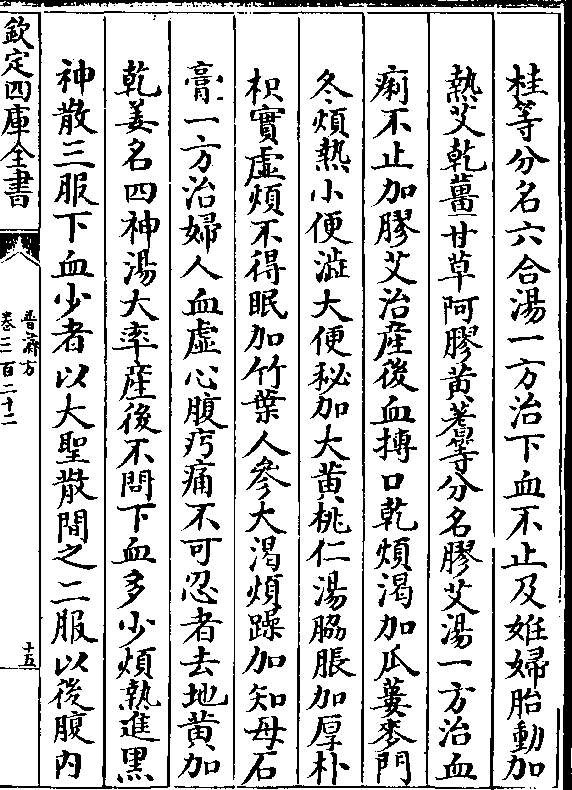 桂等分名六合湯一方治下血不止及姙婦胎動加
熱艾乾薑甘草阿膠黃蓍等分名膠艾湯一方治血
痢不止加膠艾治產後血搏口乾煩渴加瓜蔞麥門
冬煩熱小便澁大便秘加大黃桃仁湯脇脹加厚朴
枳實虛煩不得眠加竹葉人參大渴煩躁加知母石
膏一方治婦人血虛心腹疞痛不可忍者去地黃加
乾姜名四神湯大率產後不問下血多少煩熱進黑
神散三服下血少者以大聖散間之二服以後腹内
欽定四庫全書
普濟方
卷三百二十二
十五